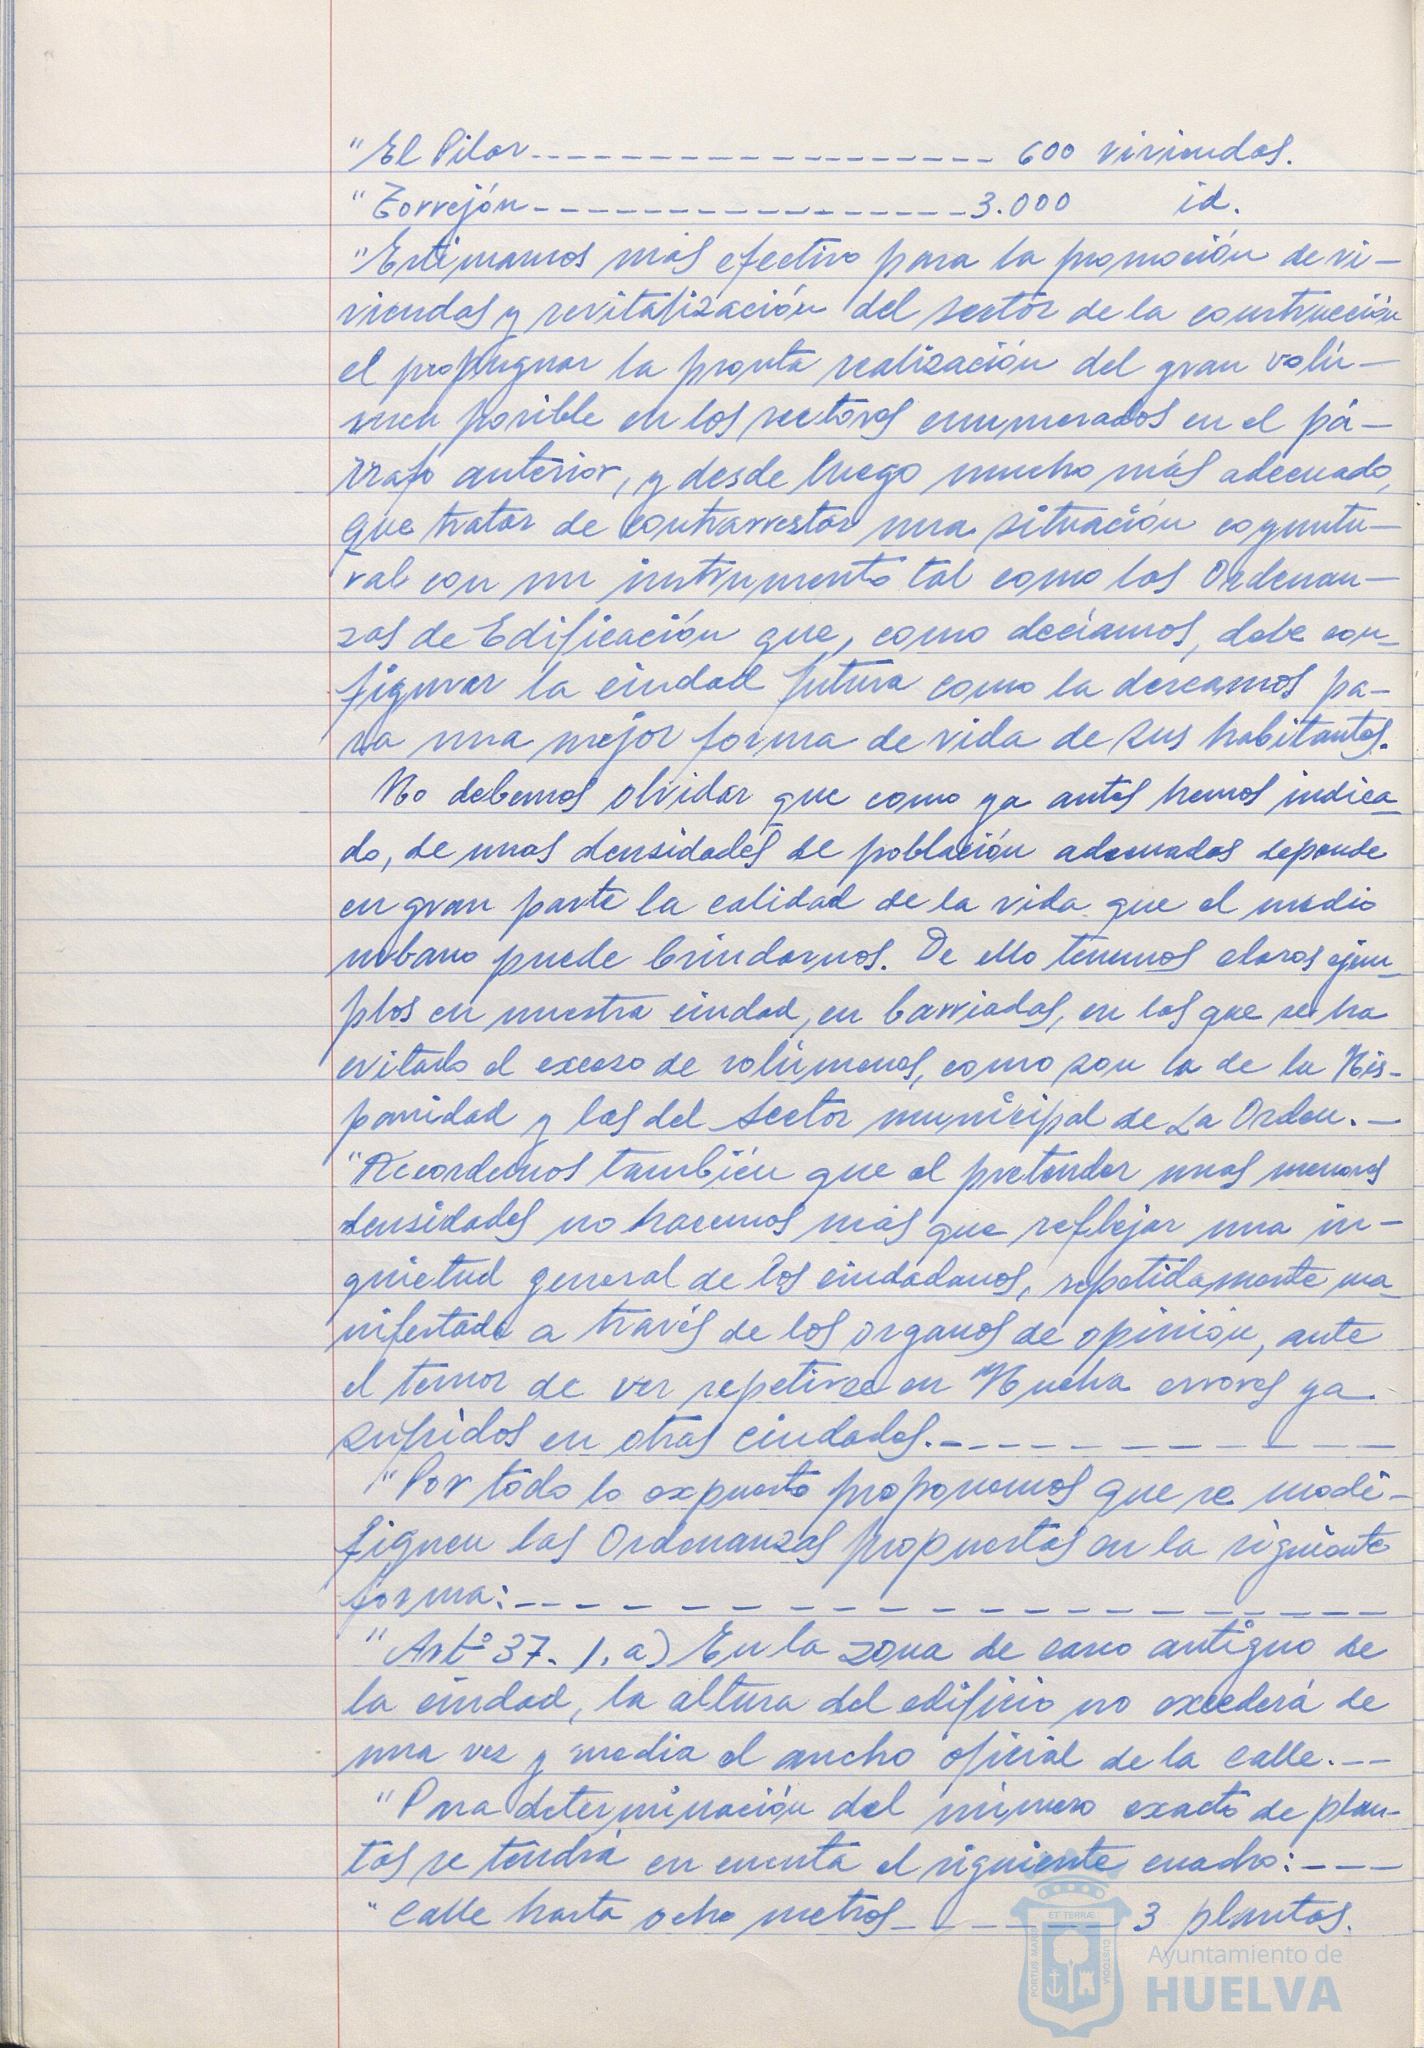 "El Pilar------------------ 600 viviendas.
"Torrejón-----------------3.000 id.
"Estimamos más efectivo para la promoción de vi-
viendas y revitalización del sector de la construcción
el propugnar la pronta realización del gran volú-
men posible en los sectores enumerados en el pá-
rrafo anterior, y desde luego mucho más adecuado,
que tratar de contrarrestar una situación coyuntu-
ral con un instrumento tal como las Ordenan-
zas de Edificación que, como decíamos, debe con-
figurar la ciudad futura como la deseamos pa-
ra una mejor forma de vida de sus habitantes.
No debemos olvidar que como ya antes hemos indica-
do, de unas densidades de población adecuadas depende
en gran parte la calidad de la vida que el medio
urbano puede brindarnos. De ello tenemos claros ejem-
plos en nuestra ciudad, en barriadas, en las que se ha
evitado el exceso de volúmenes, como son la de la His-
panidad y las del sector municipal de La Orden.-
"Recordemos también que al pretender unas menores
densidades no hacemos más que reflejar una in-
quietud general de los ciudadanos, repetidamente ma-
nifestada a través de los organos de opinión, ante
el temor de ver repetirse en Huelva errores ya
sufridos en otras ciudades.-----------
"Por todo lo expuesto proponemos que se modi-
fiquen las Ordenanzas propuestas en la siguiente
forma:-----------------
"Artº 37. 1. a) En la zona de casco antiguo de
la ciudad, la altura del edificio no excederá de
una vez y media el ancho oficial de la calle.--
"Para determinación del número exacto de plan-
tas se tendrá en cuenta el siguiente cuadro:---
"Calle hasta ocho metros------3 plantas.
ET TERRÆ
PORTUS MARIS
CUSTODIA
Ayuntamiento de
HUELVA